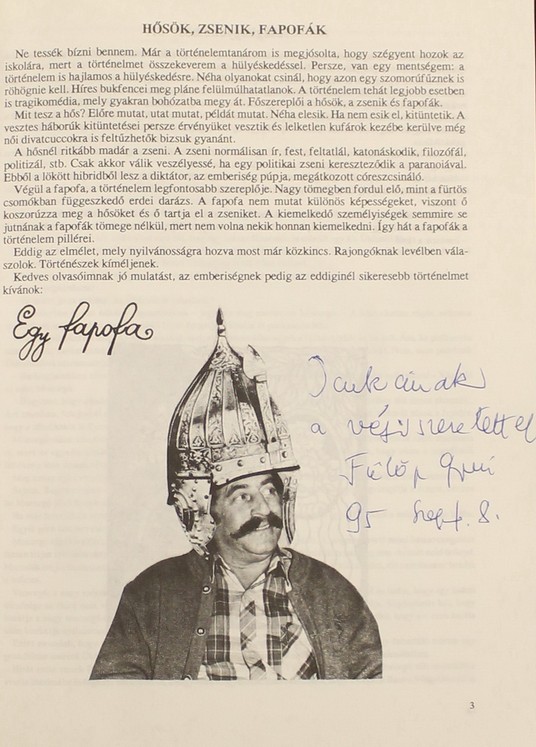 HŐSÖK, ZSENIK, FAPOFÁK
Ne tessék bízni bennem. Már a történelemtanárom is megjósolta, hogy szégyent hozok az
iskolára, mert a történelmet összekeverem a hülyéskedéssel. Persze, van egy mentségem: a
történelem is hajlamos a hülyéskedésre. Néha olyanokat csinál, hogy azon egy szomorúfűznek is
röhögnie kell. Híres bukfencei meg pláne felülmúlhatatlanok. A történelem tehát legjobb esetben
is tragikomédia, mely gyakran bohózatba megy át. Főszereplői a hősök, a zsenik és fapofák.
Mit tesz a hős? Előre mutat, utat mutat, példát mutat. Néha elesik. Ha nem esik el, kitüntetik. A
vesztes háborúk kitüntetései persze érvényüket vesztik és lelketlen kufárok kezébe kerülve még
női divatcuccokra is feltűzhetők bizsuk gyanánt.
A hősnél ritkább madár a zseni. A zseni normálisan ír, fest, feltatlál, katonáskodik, filozófál,
politizál, stb. Csak akkor válik veszélyessé, ha egy politikai zseni kereszteződik a paranoiával.
Ebből a lökött hibridből lesz a diktátor, az emberiség púpja, megátkozott córeszcsináló.
Végül a fapofa, a történelem legfontosabb szereplője. Nagy tömegben fordul elő, mint a fürtös
csomókban függeszkedő erdei darázs. A fapofa nem mutat különös képességeket, viszont ő
koszorúzza meg a hősöket és ő tartja el a zseniket. A kiemelkedő személyiségek semmire se
jutnának a fapofák tömege nélkül, mert nem volna nekik honnan kiemelkedni. Így hát a fapofák a
történelem pillérei.
Eddig az elmélet, mely nyilvánosságra hozva most már közkincs. Rajongóknak levélben vála-
szolok. Történészek kíméljenek.
Kedves olvasóimnak jó mulatást, az emberiségnek pedig az eddiginél sikeresebb történelmet
kívánok:
Egy fapofa
a régi szeretettel
Fülöp
95 Szept. 8.
3